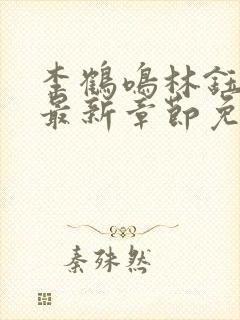 李鹤鸣林钰
最新章节免
秦殊然